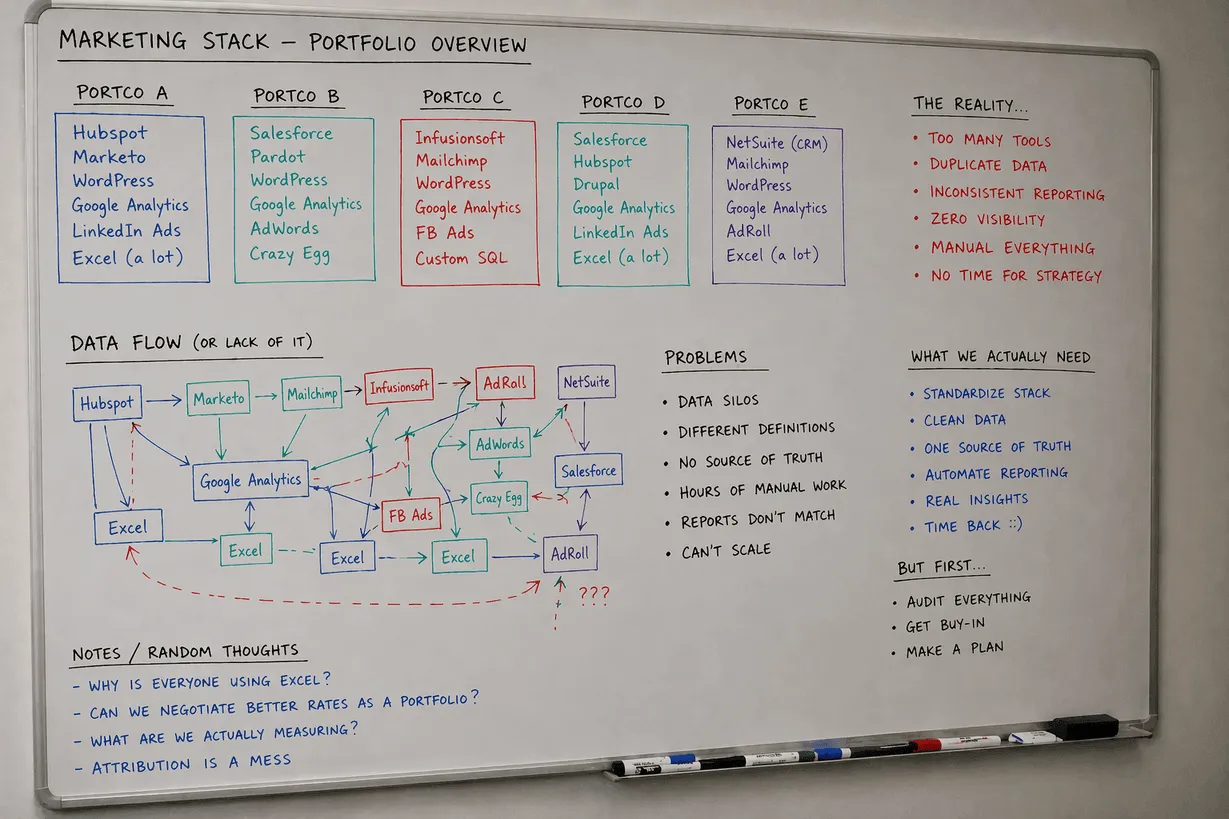 MARKETING STACK – PORTFOLIO OVERVIEW
PORTCO A
Hubspot
Marketo
WordPress
Google Analytics
LinkedIn Ads
Excel (a lot)
PORTCO B
Salesforce
Pardot
WordPress
Google Analytics
AdWords
Crazy Egg
PORTCO C
Infusionsoft
Mailchimp
WordPress
Google Analytics
FB Ads
Custom SQL
PORTCO D
Salesforce
Hubspot
Drupal
Google Analytics
LinkedIn Ads
Excel (a lot)
PORTCO E
NetSuite (CRM)
Mailchimp
WordPress
Google Analytics
AdRoll
Excel (a lot)
THE REALITY...
• TOO MANY TOOLS
• DUPLICATE DATA
• INCONSISTENT REPORTING
• ZERO VISIBILITY
• MANUAL EVERYTHING
• NO TIME FOR STRATEGY
DATA FLOW (OR LACK OF IT)
Hubspot
Marketo
Mailchimp
Infusionsoft
AdRoll
NetSuite
Google Analytics
AdWords
Salesforce
Excel
FB Ads
Crazy Egg
Excel
Excel
Excel
AdRoll
???
PROBLEMS
• DATA SILOS
• DIFFERENT DEFINITIONS
• NO SOURCE OF TRUTH
• HOURS OF MANUAL WORK
• REPORTS DON'T MATCH
• CAN'T SCALE
WHAT WE ACTUALLY NEED
• STANDARDIZE STACK
• CLEAN DATA
• ONE SOURCE OF TRUTH
• AUTOMATE REPORTING
• REAL INSIGHTS
• TIME BACK ::)
BUT FIRST...
• AUDIT EVERYTHING
• GET BUY-IN
• MAKE A PLAN
NOTES / RANDOM THOUGHTS
– WHY IS EVERYONE USING EXCEL?
– CAN WE NEGOTIATE BETTER RATES AS A PORTFOLIO?
– WHAT ARE WE ACTUALLY MEASURING?
– ATTRIBUTION IS A MESS